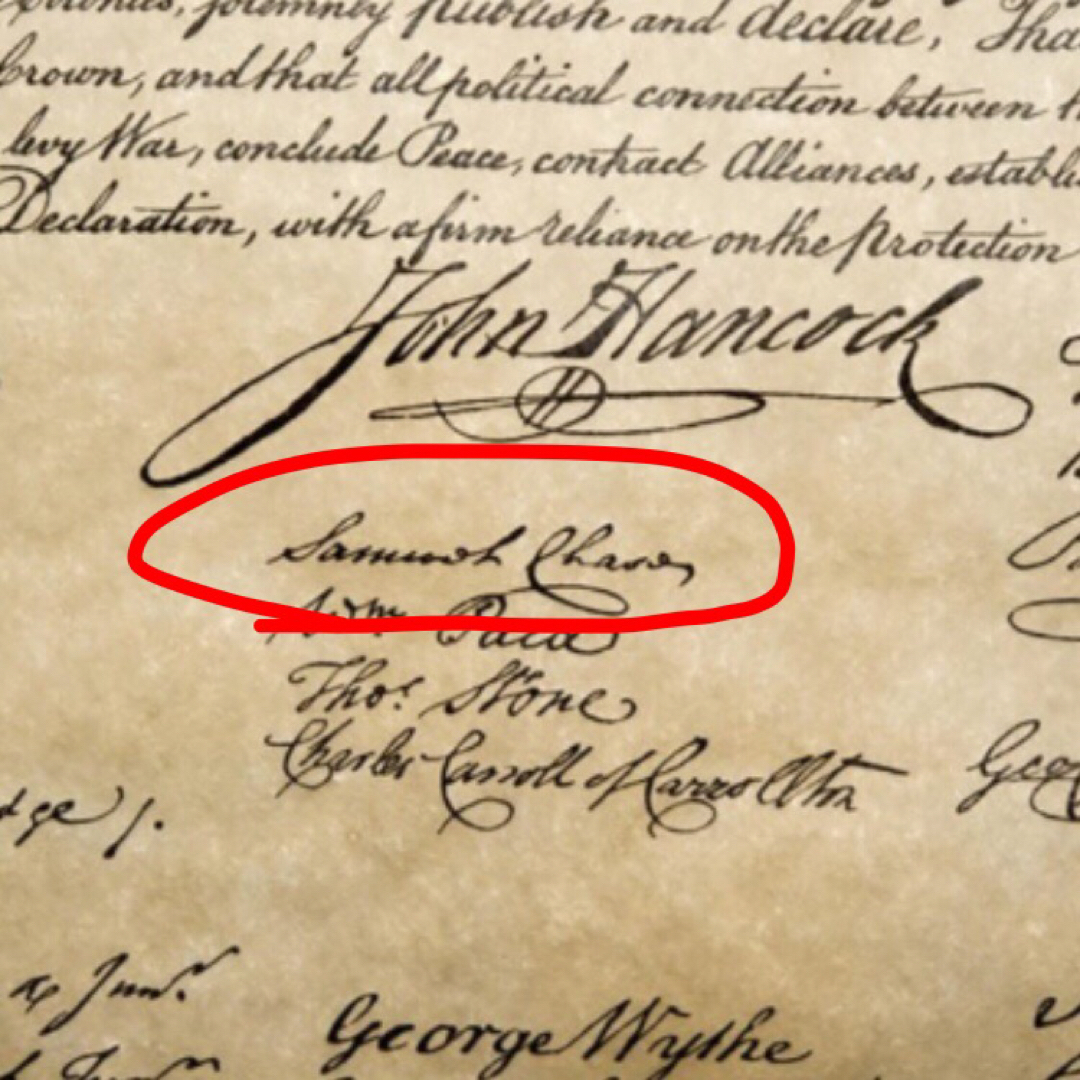 solemnly publish and declare, Tha
Crown, and that all political connection between
levy War, conclude Peace, contract Alliances, establi
Declaration, with a firm reliance on the Protection
John Hancock
Samuel Chase
Wm Paca
Thos. Stone
Charles Carroll of Carrollton
Geo
George Wythe